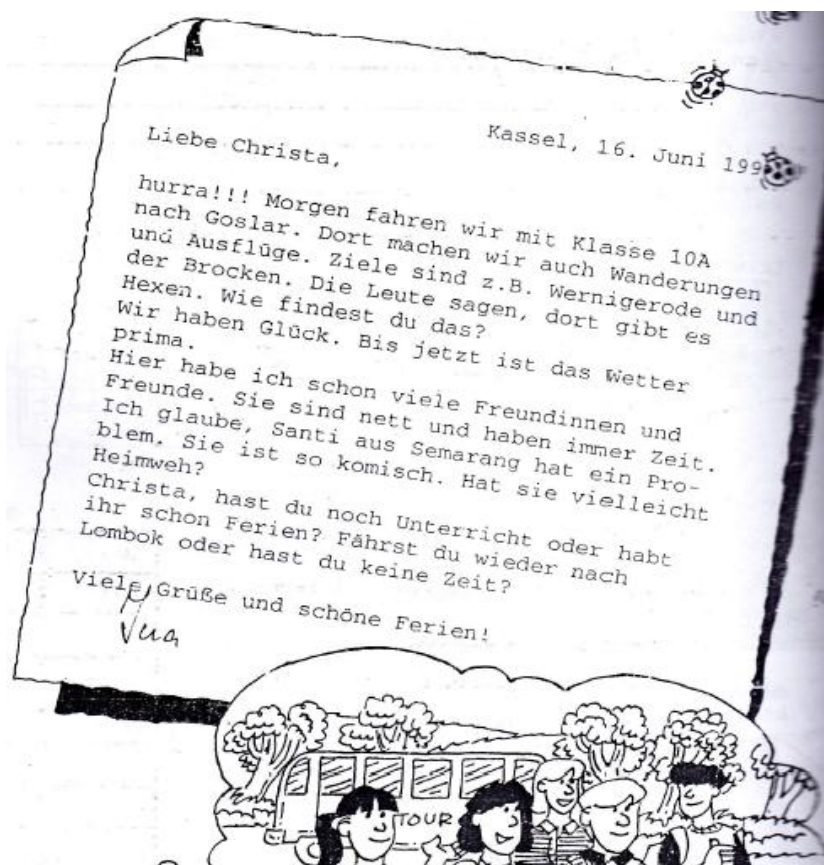 Kassel, 16. Juni 199
Liebe Christa,
hurra!!! Morgen fahren wir mit Klasse 10A
nach Goslar. Dort machen wir auch Wanderungen
und Ausflüge. Ziele sind z.B. Wernigerode und
der Brocken. Die Leute sagen, dort gibt es
Hexen. Wie findest du das?
Wir haben Glück. Bis jetzt ist das Wetter
prima.
Hier habe ich schon viele Freundinnen und
Freunde. Sie sind nett und haben immer Zeit.
Ich glaube, Santi aus Semarang hat ein Pro-
blem. Sie ist so komisch. Hat sie vielleicht
Heimweh?
Christa, hast du noch Unterricht oder habt
ihr schon Ferien? Fährst du wieder nach
Lombok oder hast du keine Zeit?
Viele Grüße und schöne Ferien!
TOUR